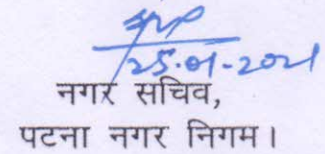 25.01-2021
नगर सचिव,
पटना नगर निगम।